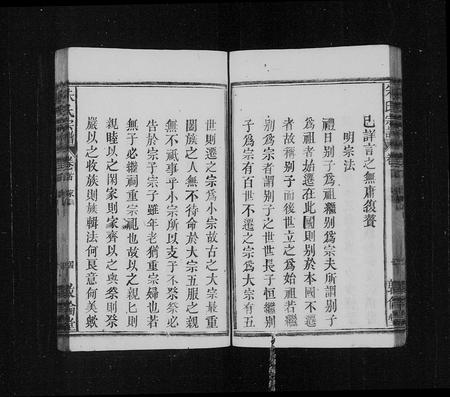 已詳言之無庸復贅
明宗法
禮曰別子為祖繼別為宗夫所謂別子
為祖者始遷在此國則別於本國不遷
者故稱別子而後世立之為始祖若繼
別為宗者謂別子之世世長子恒繼別
子為宗有百世不遷之宗為大宗有五
世則遷之宗為小宗故古之大宗最重
闔族之人無不待命於大宗五服之親
無不祇事乎小宗所以支子不祭祭必
告於宗子宗子雖年老猶重宗婦也若
無子必繼祠重宗祀也故以之親上則
親睦以之閑家則家齊以之與祭則祭
嚴以之收族則族輯法何良意何美歟
朱氏宗譜